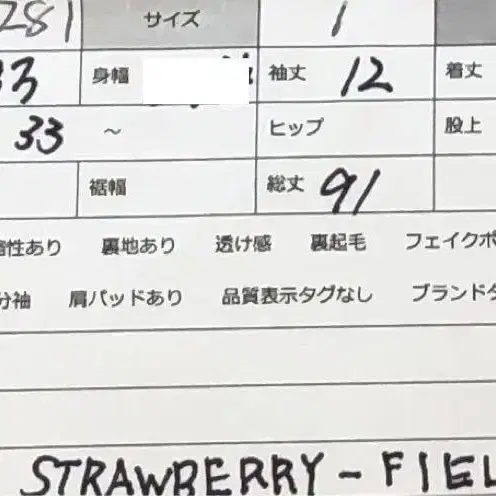 281 サイズ 1
33 身幅 袖丈 12 着丈
33 ～ ヒップ 股上
裾幅 総丈 91
裏地あり 透け感 裏起毛 フェイクポ
分袖 肩パッドあり 品質表示タグなし ブランドタ
STRAWBERRY-FIEL